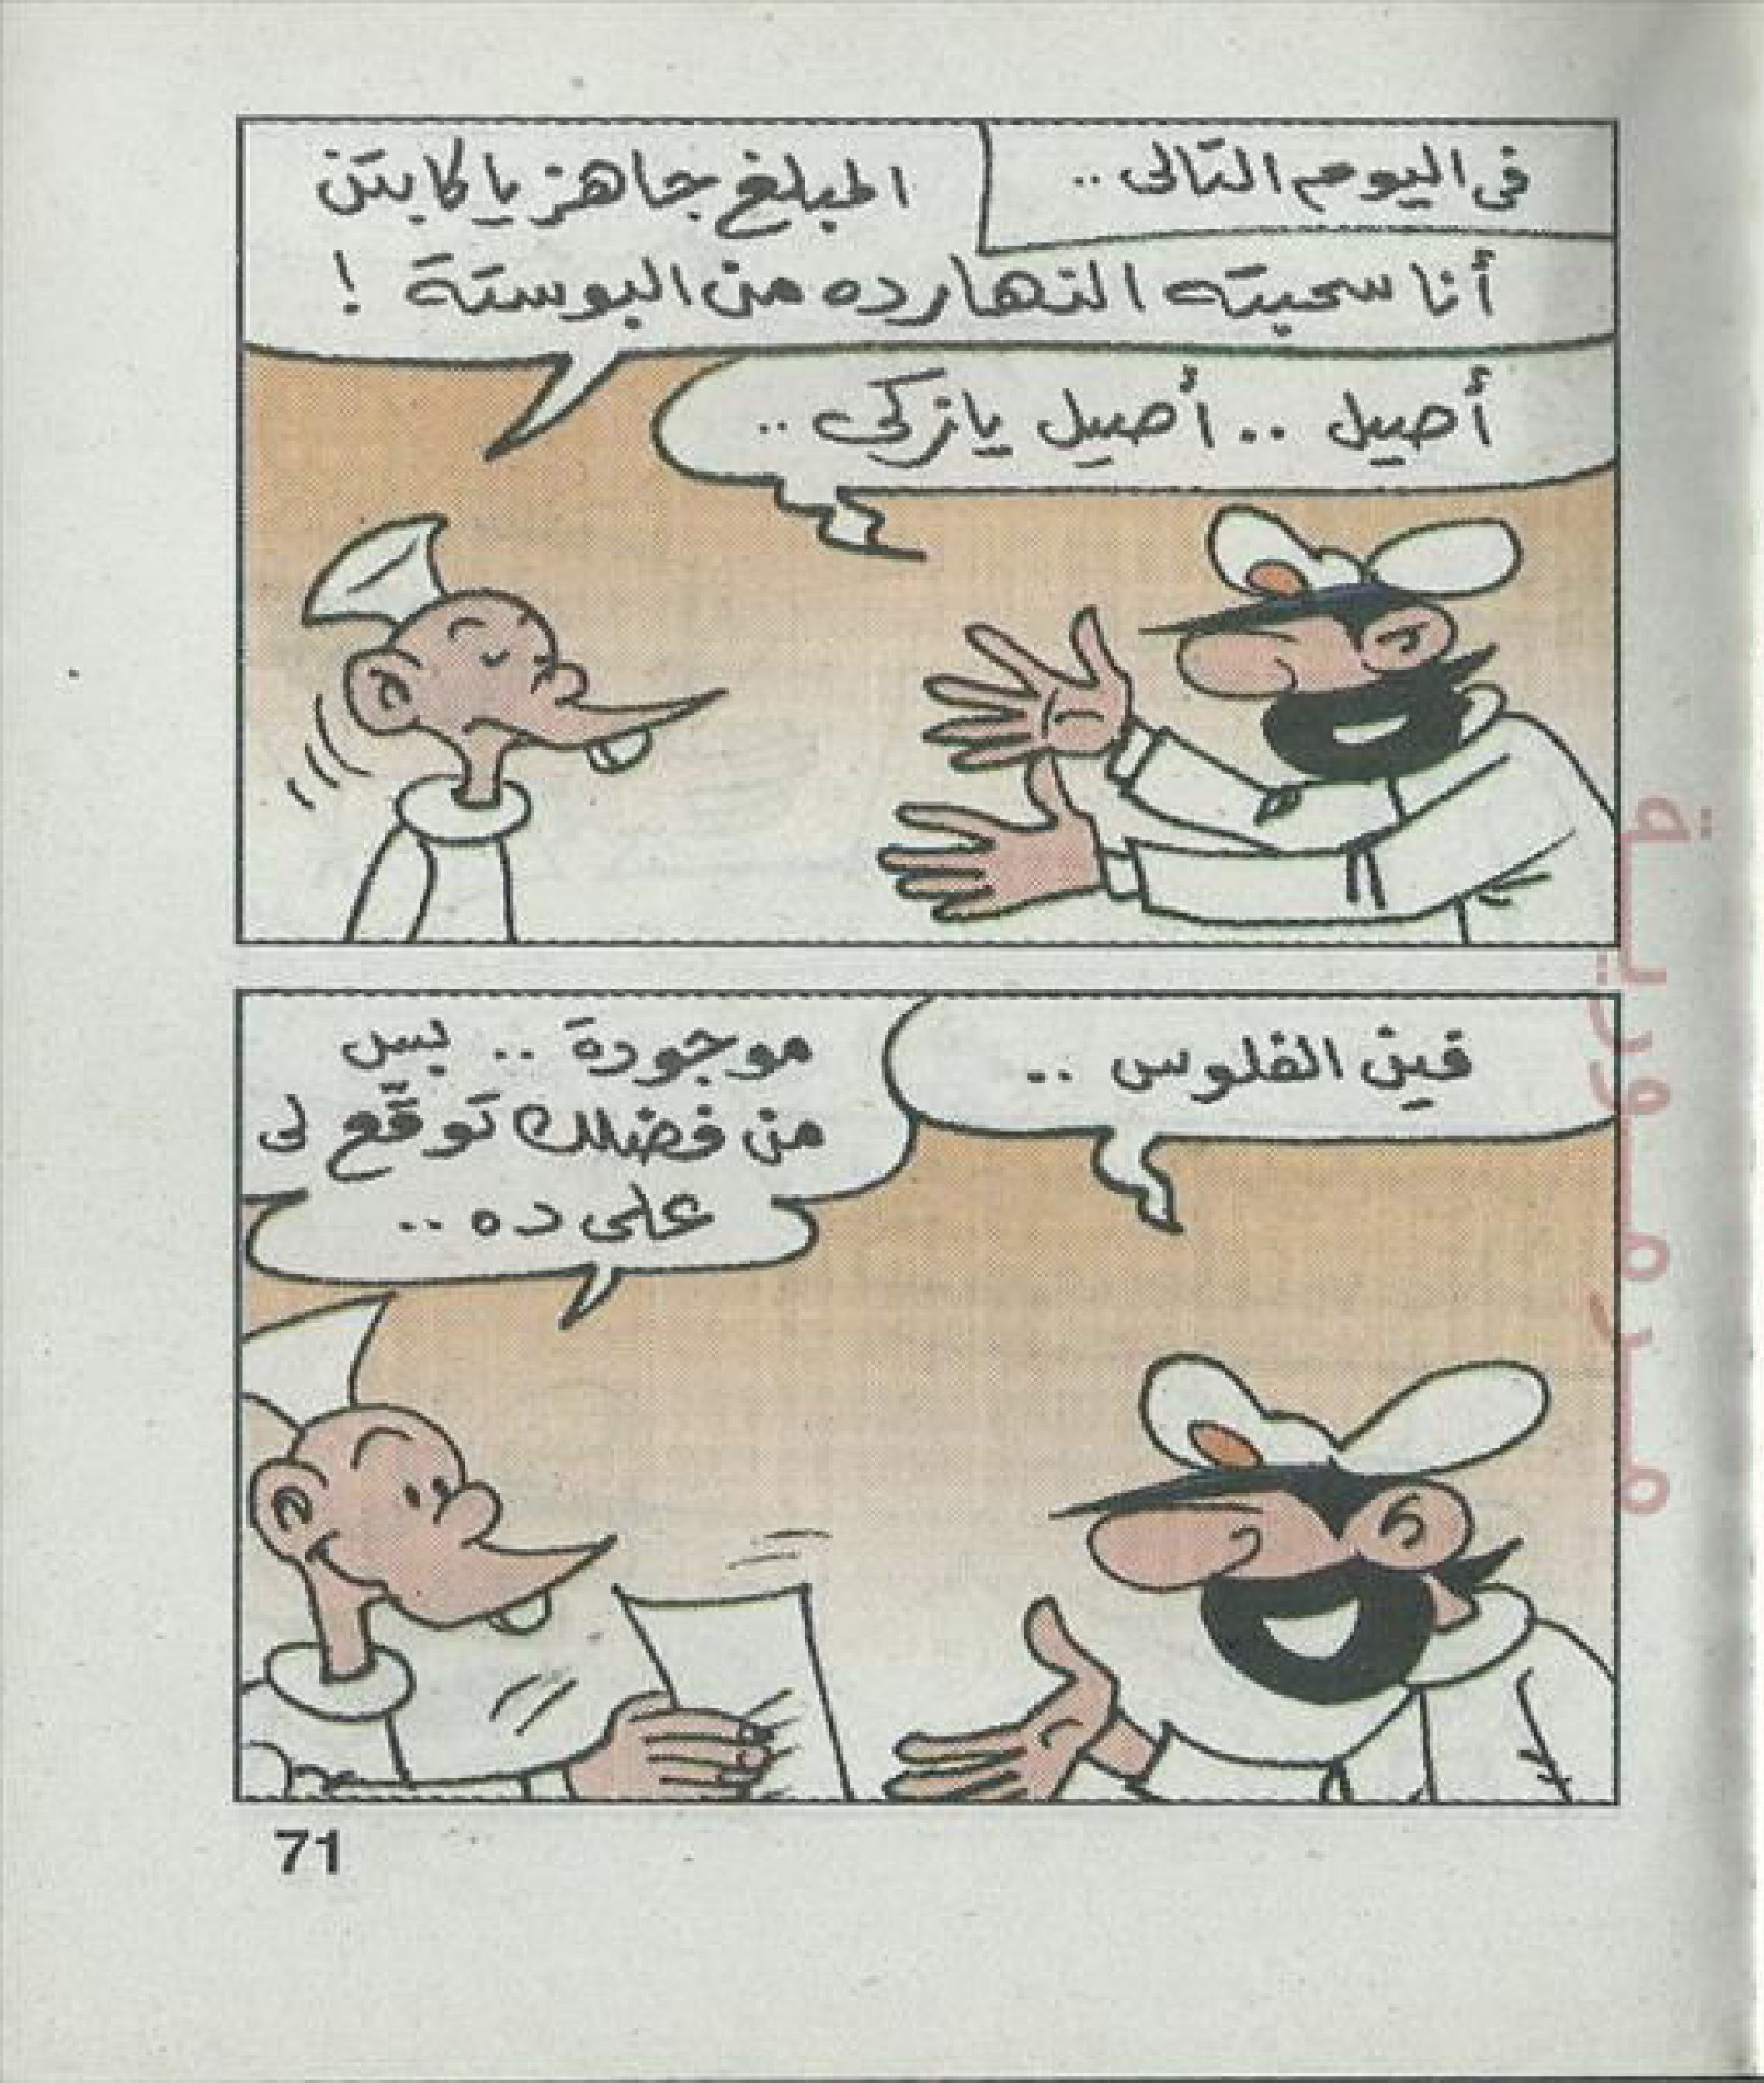 فى اليوم التالى ..
المبلغ جاهز يا كابتن
أنا سحبته النهارده من البوستة !
أصيل .. أصيل يا زكى ..
فين الفلوس ..
موجودة .. بس
من فضلك توقّع لى
على ده ..
71